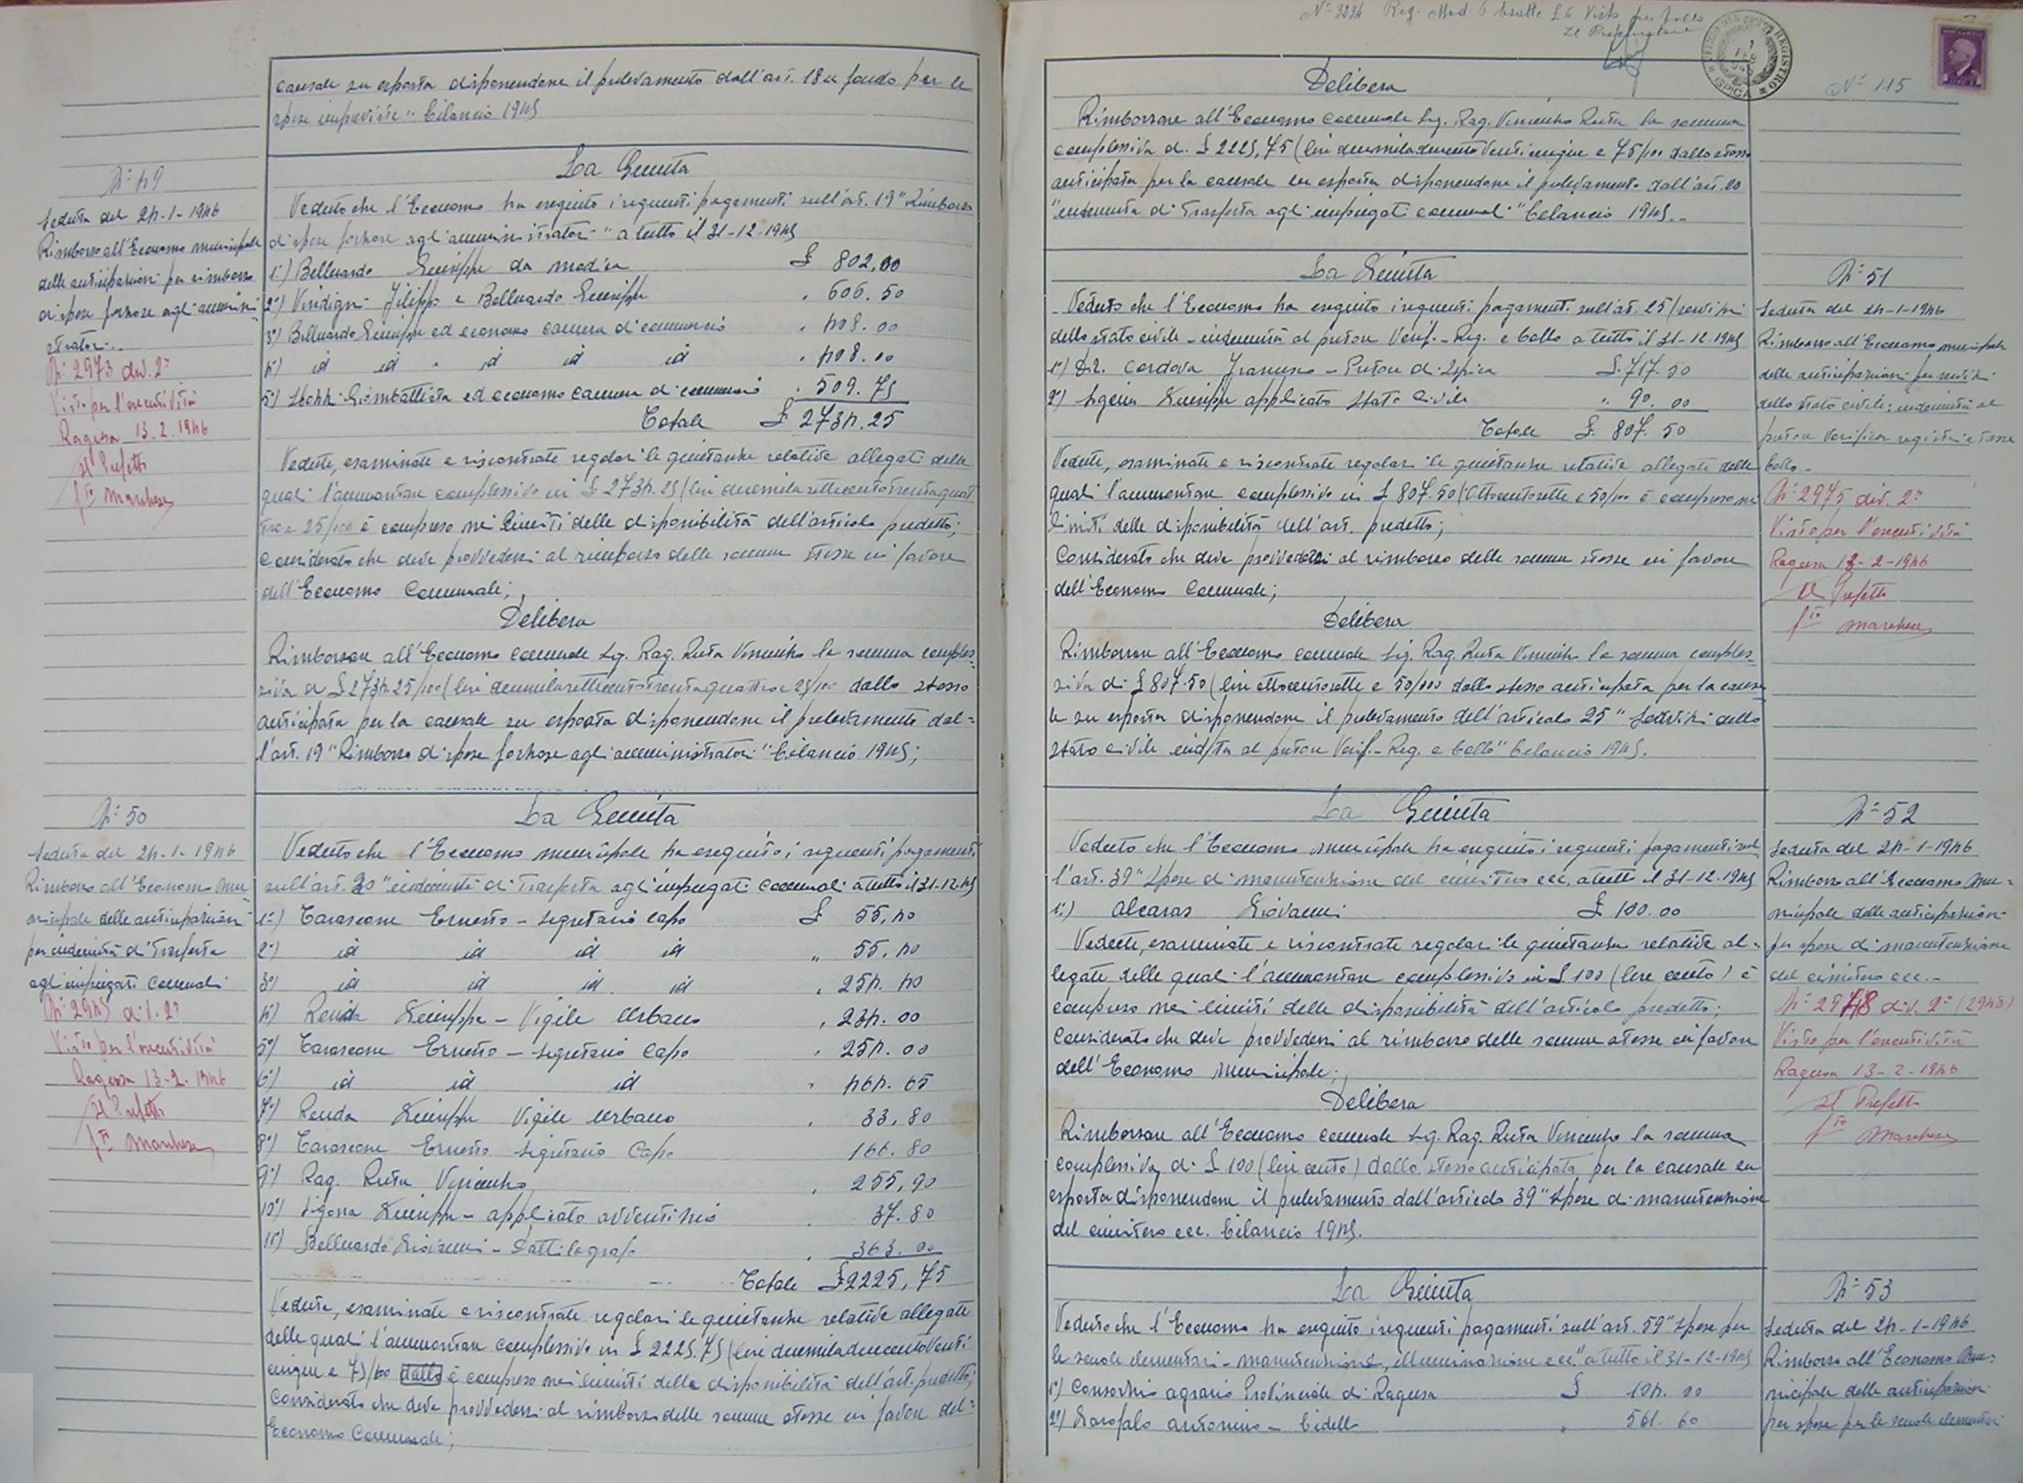 causale su esposta disponendone il prelevamento dall'art. 18 " fondo per le
spese impreviste " bilancio 1945
N° 49
Seduta del 24-1-1946
Rimborso all'Economo municipale
delle anticipazioni per rimborso
di spese forzose agli ammini-
stratori.
N° 2973 div. 2ª
Visto per l'esecutività
Ragusa 13.2.1946
Il Prefetto
f.to Marchese
La Giunta
Veduto che l'Economo ha eseguito i seguenti pagamenti sull'art. 19 " Rimborso
di spese forzose agli amministratori " a tutto il 31-12-1945
1°) Belluardo Giuseppe da Modica £ 802,00
2°) Vindigni Filippo e Belluardo Giuseppe " 606.50
3°) Belluardo Giuseppe ed economo camera di commercio " 408.00
4°) id id " id id id " 408.00
5°) Giombattista ed economo camera di commercio " 509.75
Totale £ 2734.25
Vedute, esaminate e riscontrate regolari le quietanze relative allegati delle
quali l'ammontare complessivo in £ 2734.25 (lire duemilasettecentotrentaquat
tro e 25/100 è compreso nei limiti delle disponibilità dell'articolo predetto;
Considerato che deve provvedersi al rimborso delle somme stesse in favore
dell'Economo Comunale;
Delibera
Rimborsare all'Economo comunale Sig. Rag. Ruta Vincenzo la somma comples-
siva di £ 2734 25/100 (lire duemilasettecentotrentaquattro e 25/100 dallo stesso
anticipata per la causale su esposta disponendone il prelevamento dal-
l'art. 19 " Rimborso di spese forzose agli amministratori " bilancio 1945;
N° 50
Seduta del 24-1-1946
Rimborso all'Economo Mu-
nicipale delle anticipazioni
per indennità di trasferta
agli impiegati comunali
N° 2945 div. 2ª
Visto per l'esecutività
Ragusa 13-2-1946
Il Prefetto
f.to Marchese
La Giunta
Veduto che l'Economo municipale ha eseguito i seguenti pagamenti
sull'art. 20 " indennità di trasferta agli impiegati comunali a tutto il 31.12.45
1°) Tarascone Ernesto - Segretario Capo £ 55,40
2°) id id id id " 55,40
3°) id id id id " 254.40
4°) Renda Giuseppe - Vigile Urbano " 234.00
5°) Tarascone Ernesto - Segretario Capo " 254.00
6°) id id id " 464.65
7°) Renda Giuseppe Vigile Urbano " 33.80
8°) Tarascone Ernesto Segretario Capo 166.80
9°) Rag. Ruta Vincenzo " 255,90
10°) Giuseppe - applicato avventizio " 37.80
11°) Belluardo Giovanni - Dattilografo " 363.00
Totale £ 2225,75
Vedute, esaminate e riscontrate regolari le quietanze relative allegate
delle quali l'ammontare complessivo in £ 2225.75 (lire duemiladuecentoventi
cinque e 75/100 dallo è compreso nei limiti della disponibilità dell'art. predetto;
Considerato che deve provvedersi al rimborso delle somme stesse in favore del-
l'Economo Comunale;
N° 3234 Reg. Mod. 6
N° 115
Delibera
Rimborsare all'Economo comunale Sig. Rag. Vincenzo Ruta la somma
complessiva di £ 2225,75 (lire duemiladuecentoventicinque e 75/100 dallo stesso
anticipata per la causale su esposta disponendone il prelevamento dall'art. 20
" indennità di trasferta agli impiegati comunali " bilancio 1945.-
La Giunta
Veduto che l'Economo ha eseguito i seguenti pagamenti sull'art. 25 (servizi
dello stato civile - indennità al pretore Verif. - Reg. e bollo a tutto il 31-12-1945
1°) Dr. Cordova Francesco - Pretore di Ispica £. 717.50
2°) Giuseppe applicato stato civile " 90.00
Totale £. 807.50
Vedute, esaminate e riscontrate regolari le quietanze relative allegate delle
quali l'ammontare complessivo in £ 807.50 (Ottocentosette e 50/100 è compreso nei
limiti delle disponibilità dell'art. predetto;
Considerato che deve provvedersi al rimborso delle somme stesse in favore
dell'Economo Comunale;
Delibera
Rimborsare all'Economo comunale Sig. Rag. Ruta Vincenzo la somma comples-
siva di £ 807.50 (lire ottocentosette e 50/100 dallo stesso anticipata per la causa
le su esposta disponendone il prelevamento dell'articolo 25 " Servizi dello
stato civile ind/tà al pretore Verif. - Reg. e bollo " bilancio 1945.
N° 51
Seduta del 24-1-1946
Rimborso all'Economo municipale
delle anticipazioni per servizi
dello stato civile: indennità al
pretore verifica registri e tasse
bollo.-
N° 2975 div. 2ª
Visto per l'esecutività
Ragusa 13-2-1946
Il Prefetto
f.to Marchese
La Giunta
Veduto che l'Economo municipale ha eseguito i seguenti pagamenti sul
l'art. 39 " Spese di manutenzione del cimitero ecc. a tutto il 31-12-1945
1°) Alcaras Giovanni £ 100.00
Vedute, esaminate e riscontrate regolari le quietanze relative al-
legate delle quali l'ammontare complessivo in £ 100 (lire cento) è
compreso nei limiti delle disponibilità dell'articolo predetto;
Considerato che deve provvedersi al rimborso delle somme stesse in favore
dell'Economo municipale;
Delibera
Rimborsare all'Economo comunale Sig. Rag. Ruta Vincenzo la somma
complessiva di £ 100 (lire cento) dallo stesso anticipata per la causale su
esposta disponendone il prelevamento dall'articolo 39 " Spese di manutenzione
del cimitero ecc. bilancio 1945.
N° 52
Seduta del 24-1-1946
Rimborso all'Economo Mu-
nicipale delle anticipazioni
per spese di manutenzione
del cimitero ecc.-
div. 2ª (2948)
Visto per l'esecutività
Ragusa 13-2-1946
Il Prefetto
f.to Marchese
La Giunta
Veduto che l'Economo ha eseguito i seguenti pagamenti sull'art. 59 " Spese per
le scuole elementari - manutenzione, illuminazione ecc " a tutto il 31-12-1945
1°) Consorzio agrario Provinciale di Ragusa £ 104.00
2°) Garofalo Antonino - bidello " 561.60
N° 53
Seduta del 24-1-1946
Rimborso all'Economo Mu-
nicipale delle anticipazioni
per spese per le scuole elementari